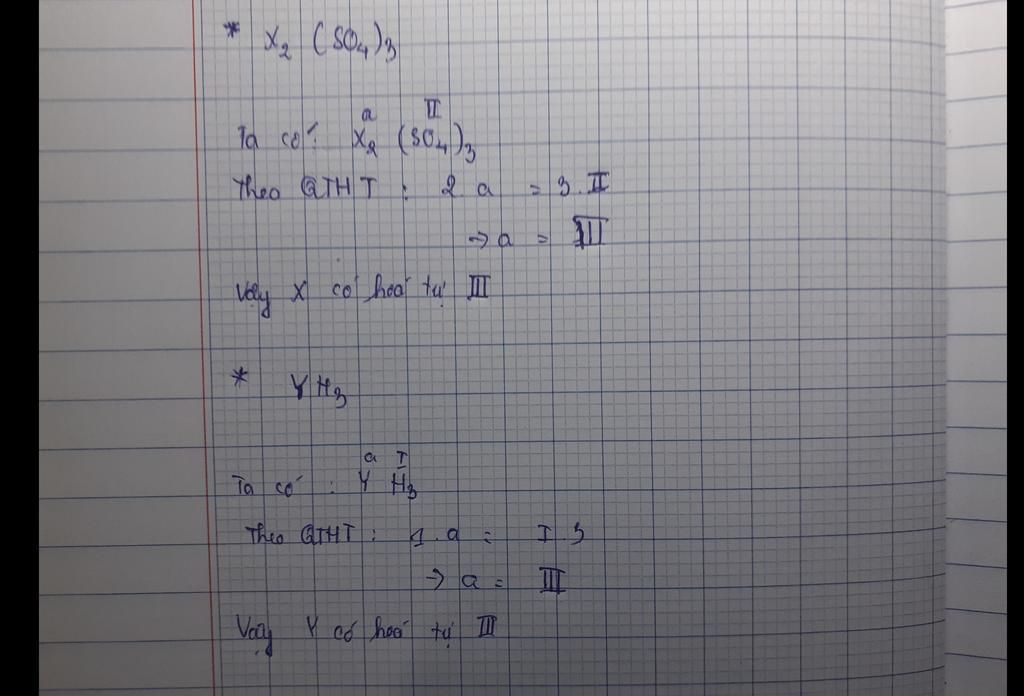 * X₂ (SO₄)₃
a II
Ta có: X₂ (SO₄)₃
Theo QTHT : 2.a = 3.II
→ a = III
Vậy X có hoá tự III
* YH₃
a I
Ta có : Y H₃
Theo QTHT : 1.a = I.3
→ a = III
Vậy Y có hoá tự III